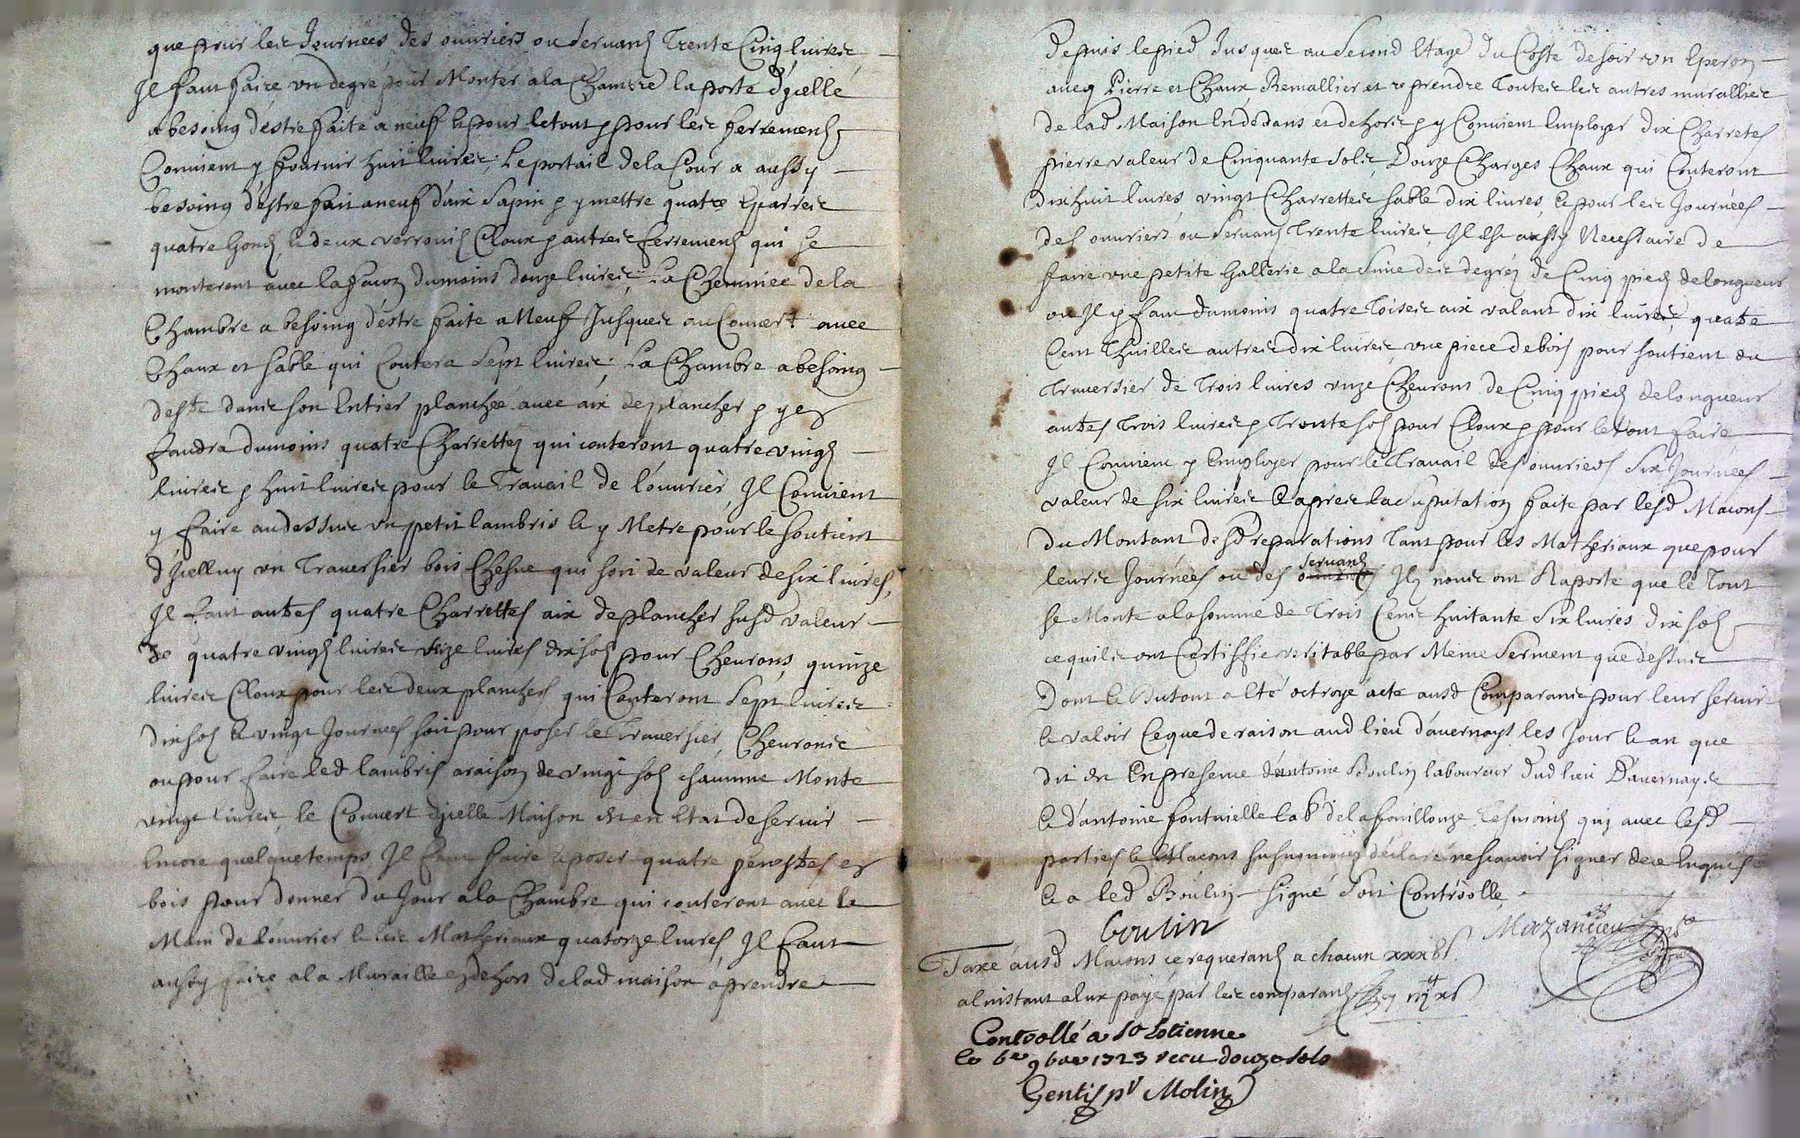 que pour les Journées des ouuriers ou seruans Trente Cinq liures
Il faut faire vn degré pour Monter a la Chambre la porte d'jcelle
a besoing d'estre faite a neuf & pour le tout & pour les ferremens
Conuient y fournir huit liures, Le portail de la Cour a aussy
besoing d'estre fait a neuf d'aix Sapin & y mettre quatre Eparres
quatre gonds, & deux verrouils Cloux & autres ferremens qui se
monteront auec la façon du moins douze liures, La Cheminée de la
Chambre a besoing d'estre faite a Neuf Jusques au Couuert auec
Chaux et sable qui Coutera sept liures, La Chambre a besoing
destre dans son Entier planchée auec aix de plancher & y en
faudra du moins quatre Charrettes qui couteront quatre vingts
liures & huit liures pour le Trauail de l'ouurier, Il Conuient
y faire au dessus vn petit lambris & y Metre pour le soutient
d'jcelluy vn Trauersier bois Chesne qui soit de valeur de six liures,
Il faut autres quatre Charrettes aix de plancher susd valeur
de quatre vingts liures seize liures dix sols pour Cheurons, quinze
liures Cloux pour les deux planchers qui Couteront Sept liures
dix sols & vingt Journées soit pour poser le Trauersier, Cheurons
ou pour faire led lambris a raison de vingt sols chacune Monte
vingt liures, le Couuert d'jcelle Maison est en Etat de seruir
Encore quelque temps Il faut faire & poser quatre fenestres en
bois pour donner du Jour a la Chambre qui couteront auec la
Main de l'ouurier & les Matheriaux quatorze liures, Il faut
aussy faire a la Muraille en dehors de lad maison a prendre
depuis le pied Jusques au second Etage du Costé de soir vn Eperon
aueq Pierre et Chaux, Remallier et reprendre Toutes les autres murallies
de lad Maison En dedans et dehors & y Conuient Employer dix Charretes
pierre valeur de Cinquante sols, Douze Charges Chaux qui Couteront
dix huit liures, vingt Charrettes sable dix liures, & pour les Journées
des ouuriers ou seruans Trente liures, Il Est aussy Necessaire de
faire vne petite Gallerie a la Sime des degrés de Cinq pieds de longueur
ou Il y faut du moins quatre Toises aix valant dix liures, quatre
Cent Thuilles autres dix liures, vne piece de bois pour soutient ou
Trauersier de Trois liures vnze Cheurons de Cinq pieds de longueur
autres Trois liures & Trente sols pour Cloux & pour le tout faire
Il Conuient y Employer pour le Trauail des ouuriers Six Journées
valeur de six liures & apres la suputation faite par lesd Maçons
du Montant desd reparations Tant pour les Matheriaux que pour
leurs Journées ou des seruans Ils nous ont Raporté que le Tout
se Monte a la somme de Trois Cens huitante Six liures dix sols
ce qu'ils ont Certiffié veritable par Meme Serment que dessus
Dont & du tout a Eté octroyé acte ausd Comparans pour leur seruir
& valoir Ce que de raison aud lieu d'auernays les Jour & an que
dit est En presence d'antoine Boulin laboureur dud lieu D'auernays
& d'antoine fontuielle labr de la fouillouze Tesmoins qui auec lesd
parties & Maçons susnommés déclaré ne scauoir signer de ce Enquis
& a led Boulin signé Soit Controollé
boulin
Taxé ausd Maçons ce requerans a chacun xxx s
a l'instant a Eux payé par les comparans
Controllé a St Etienne
le 6e 9bre 1723 recu douze sols
Gentis pr Molin